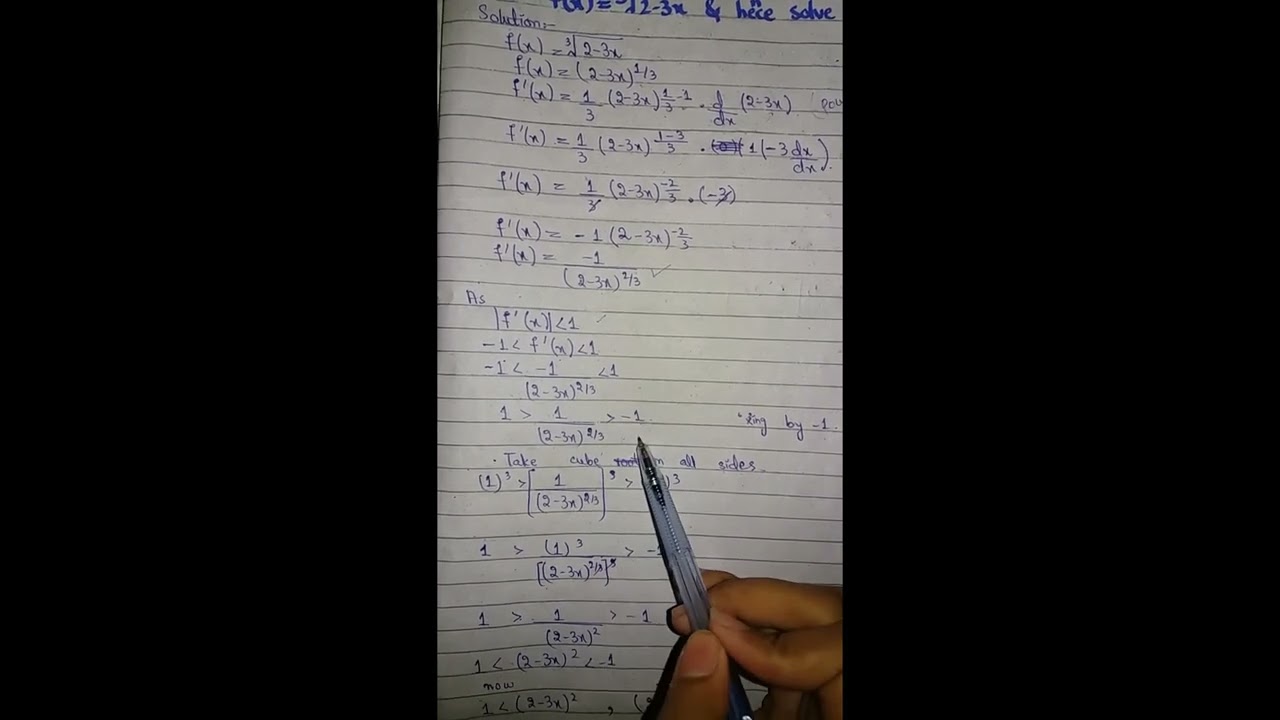 f(x) = ³√2-3x & hece solve
Solution:-
f(x) = ³√2-3x
f(x) = (2-3x)^1/3
f'(x) = 1/3 (2-3x)^1/3-1 . d/dx (2-3x)
f'(x) = 1/3 (2-3x)^1-3/3 . 1(-3 dx/dx).
f'(x) = 1/3 (2-3x)^-2/3 . (-3)
f'(x) = -1 (2-3x)^-2/3
f'(x) = -1/(2-3x)^2/3
As
|f'(x)| < 1
-1 < f'(x) < 1
-1 < -1/(2-3x)^2/3 < 1
1 > 1/(2-3x)^2/3 > -1 "xing by -1.
. Take cube on all sides.
(1)³ > [1/(2-3x)^2/3]³ > )³
1 > (1)³/[(2-3x)^2/3]³ > -1
1 > 1/(2-3x)² > -1
1 < (2-3x)² < -1
now
1 < (2-3x)² , (2